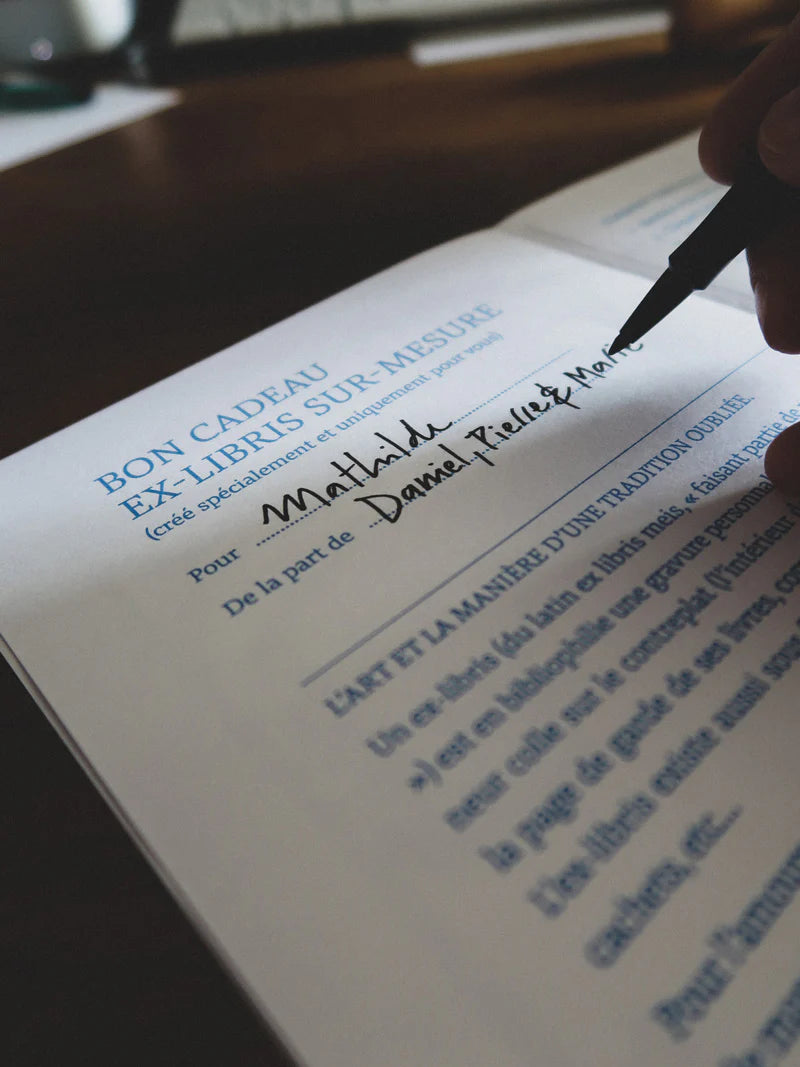 BON CADEAU
EX-LIBRIS SUR-MESURE
(créé spécialement et uniquement pour vous)
Pour Mathilde
De la part de Daniel, Pierre & Marie
L'ART ET LA MANIÈRE D'UNE TRADITION OUBLIÉE.
Un ex-libris (du latin ex libris meis, « faisant partie de
») est en bibliophilie une gravure personnal
neur colle sur le contreplat (l'intérieur d
la page de garde de ses livres, co
L'ex-libris existe aussi sous
cachets, etc...
Pour l'amour